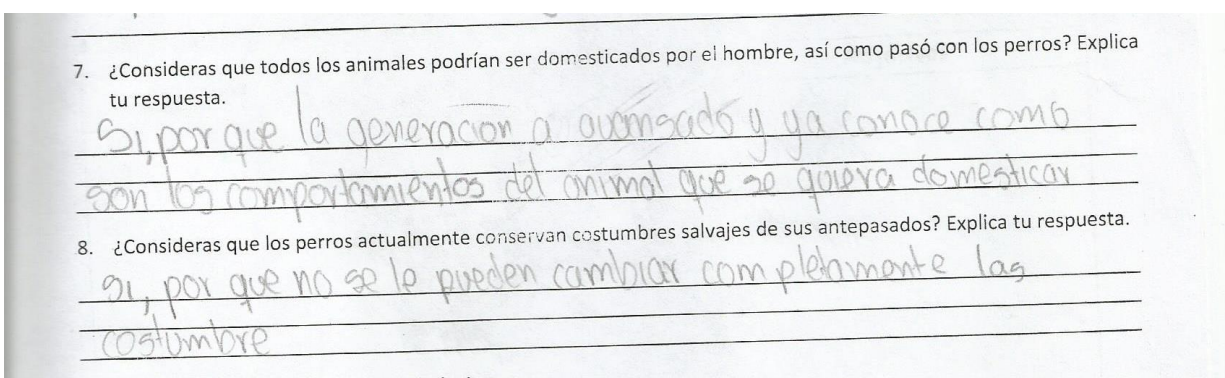 7. ¿Consideras que todos los animales podrían ser domesticados por el hombre, así como pasó con los perros? Explica
tu respuesta.
Si, por que la generacion a avansado y ya conoce como
son los comportamientos del animal que se quiera domesticar
8. ¿Consideras que los perros actualmente conservan costumbres salvajes de sus antepasados? Explica tu respuesta.
si, por que no se le pueden cambiar completamente las
costumbre